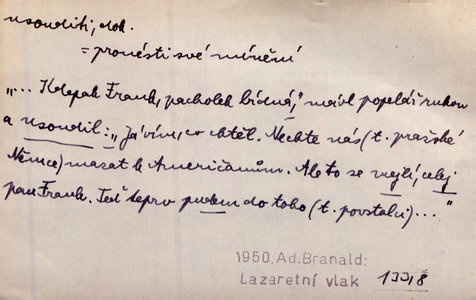 usouditi, dok.
= pronésti své mínění
"... Kdepak Frank, pacholek bídná," mávl popelář rukou
a usoudil: "Já vím, co chtěl. Nechte nás (t. pražské
Němce) mazat k Američanům. Ale to se mejlí, celej
pan Frank. Teď teprv pudem do toho (t. povstalci) ..."
1950, Ad. Branald:
Lazaretní vlak 133,8